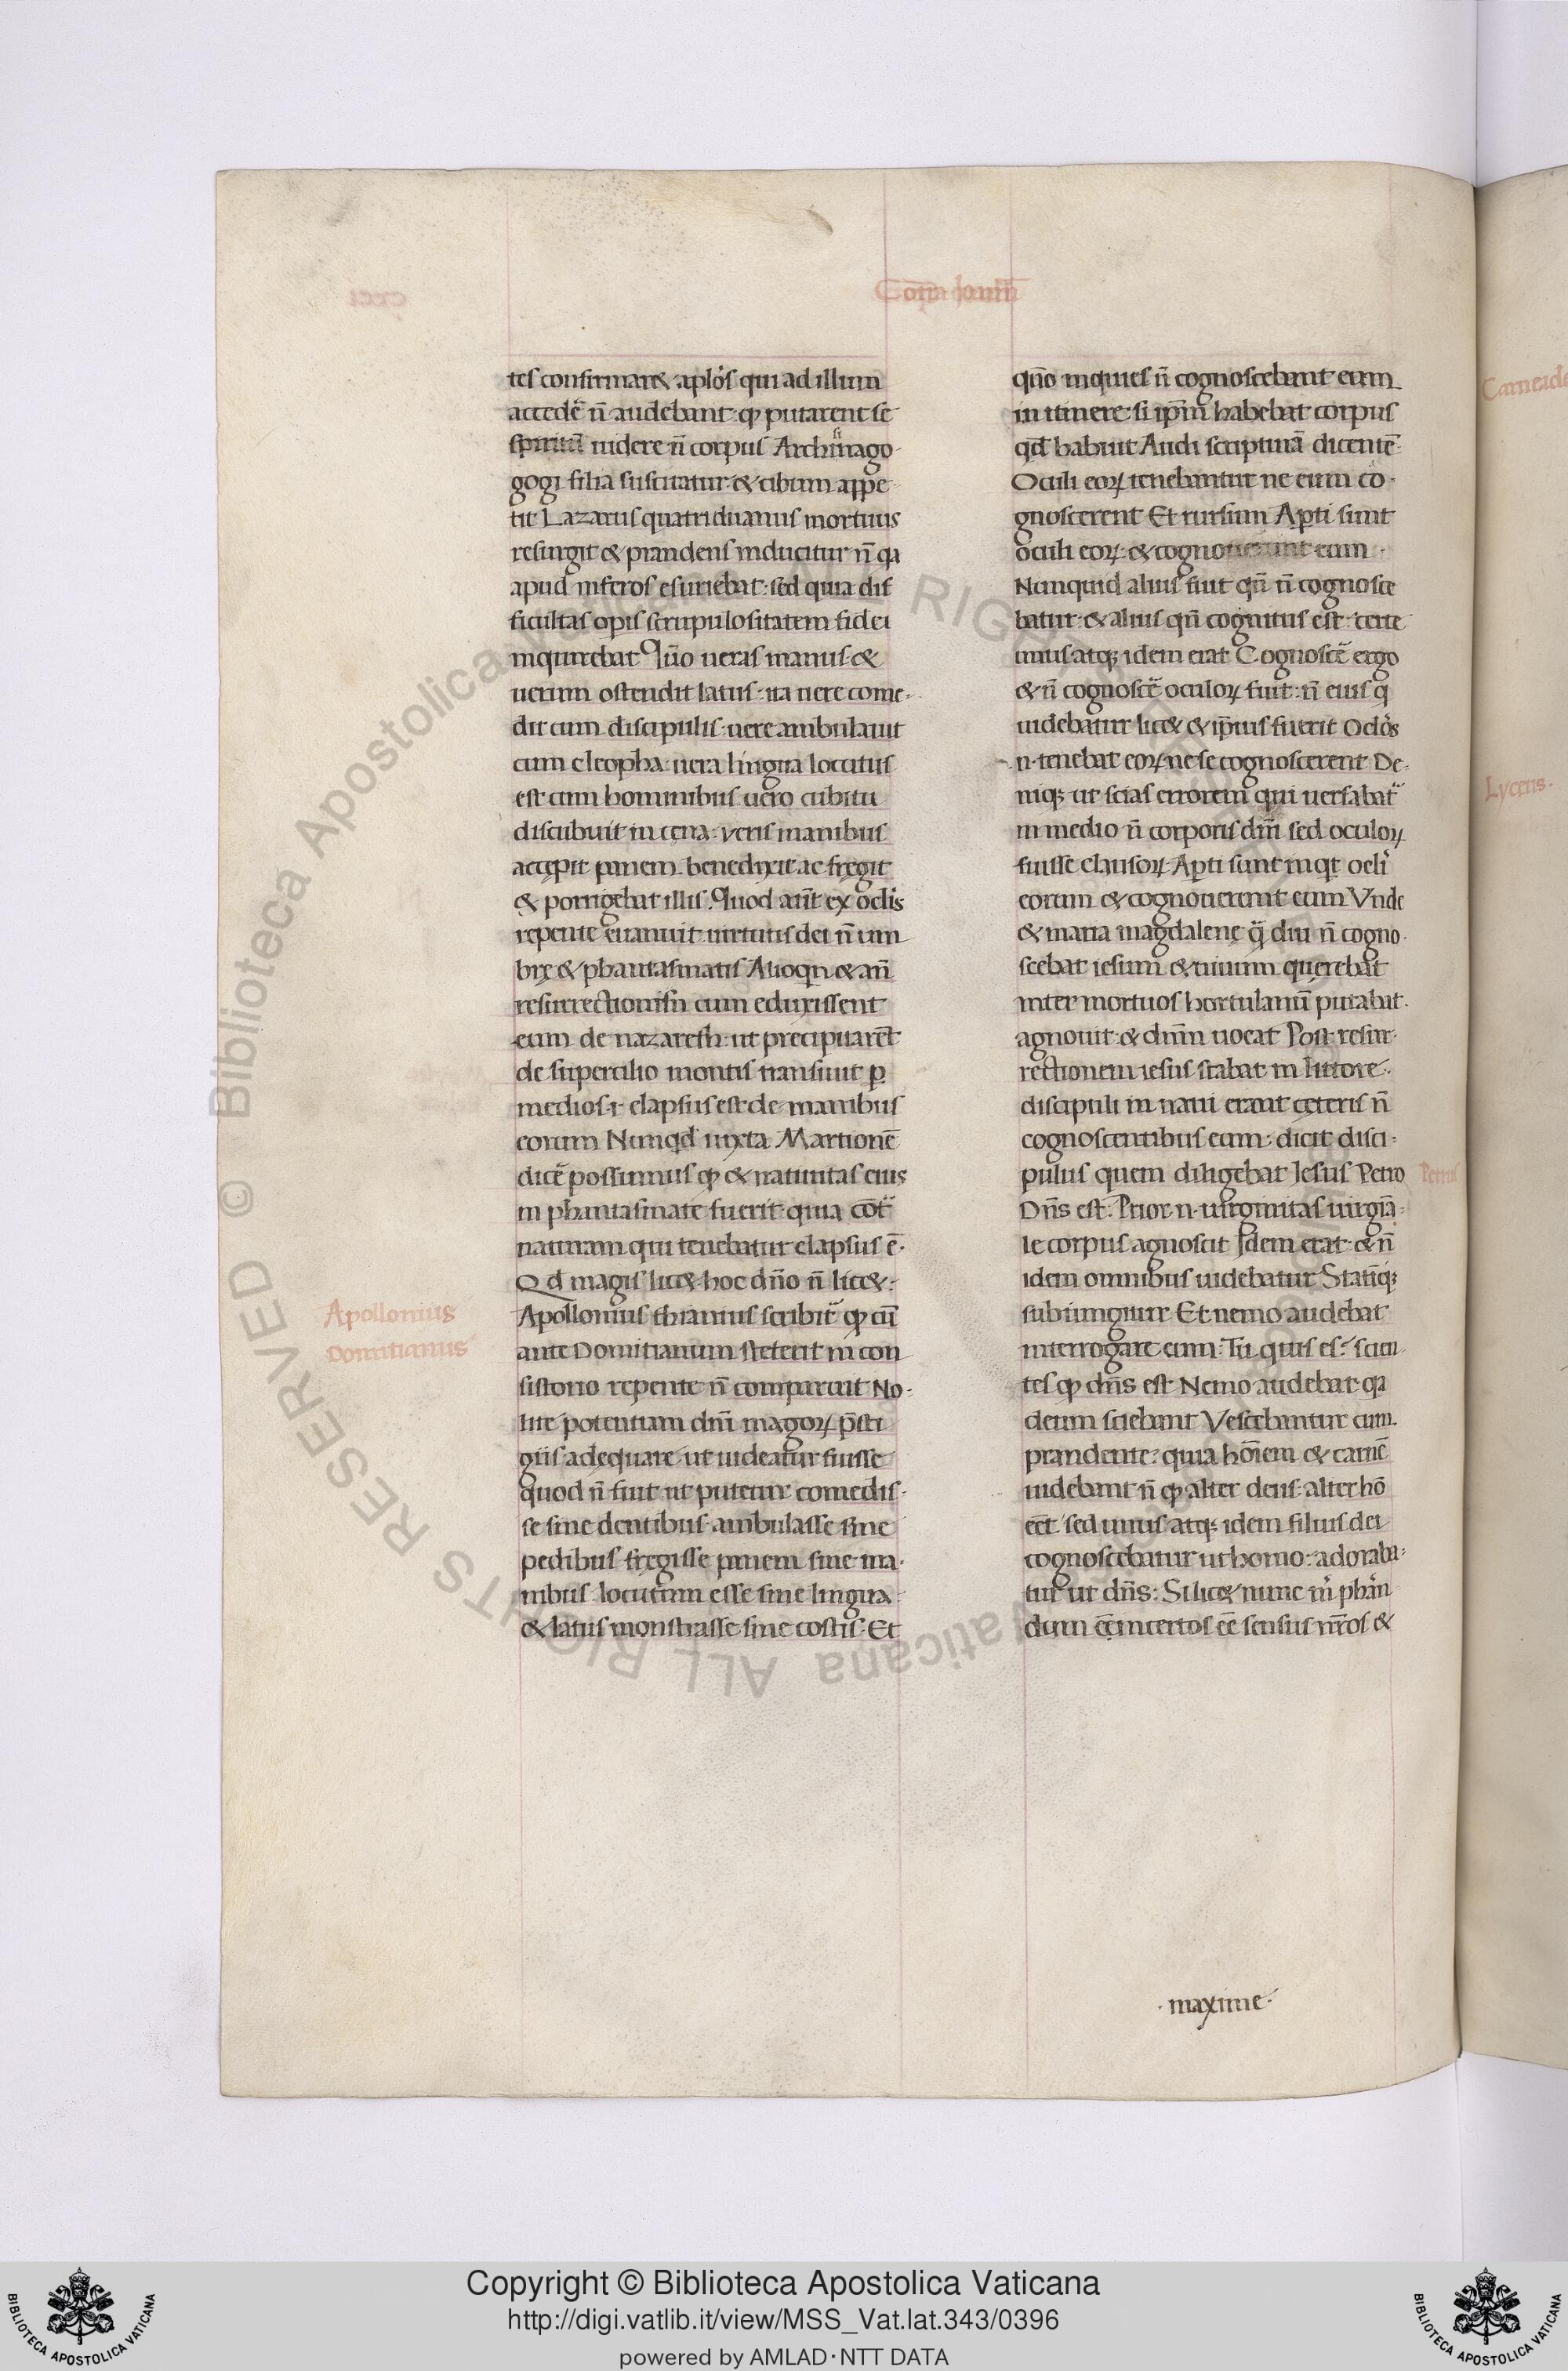 Cont͞ra Ioui͞n
tes confirmaret aplo͛s qui ad illum
accede͛ n̄ audebant· ꝙ putarent se
spiritū uidere n̄ corpus Archisinago
gogi filia suscitatur· & cibum appe
tit Lazarus quatriduanus mortuus
resurgit & prandens inducitur n̄ qa
apud inferos esuriebat: sed quia dif
ficultas opis scrupulositatem fidei
inquirebat Quō ueras manus· &
uerum ostendit latus· ita uere come-
dit cum discipulis· uere ambulauit
cum cleopha· uera lingua locutus
est cum hominibus· uero cubitu
discubuit in cęna· veris manibus
accepit panem· benedixit ac fregit
& porrigebat illis· Quod aūt ex oclis
repente euanuit· uirtutis dei n̄ um
brę & phantasmatis Alioqn & an̄
resurrectionem cum eduxissent
eum de nazareth· ut precipitarēt
de supercilio montis transiuit ꝑ
medios· i· elapsus est de manibus
eorum Nunqd iuxta Martionē
dice͛ possumus ꝙ & natiuitas eius
in phantasmate fuerit· quia cōt͛
naturam qui tenebatur elapsus ē·
Qd magis licet hoc dn̄o n̄ licet·
Apollonius thianius scribit͛ ꝙ cū
ante Domitianum steterit in con
sistorio repente n̄ comparuit No-
lite potentiam dnī magoꝝ p̄sti
giis adequare· ut uideatur fuisse
quod n̄ fuit· ut putetur comedis-
se sine dentibus· ambulasse sine
pedibus· fregisse panem sine ma-
nibus· locutum esse sine lingua·
& latus monstrasse sine costis· Et
Apollonius
Domitianus
qn̄o inquies n̄ cognoscebant eum
in itinere· si ip̄m habebat corpus
qd habuit Audi scripturā dicentē·
Oculi eoꝝ tenebantur ne eum co-
gnoscerent Et rursum Aꝑti sunt
oculi eoꝝ· & cognouerunt eum·
Nunquid alius fuit qn̄ n̄ cognosce
batur· & alius qn̄ cognitus est· certe
unus atqꝫ idem erat Cognosce͛ ergo
& n̄ cognosce͛ oculoꝝ fuit· n̄ eius q
uidebatur licet & ip̄ius fuerit Oclo͛s
·n· tenebat eoꝝ ne se cognoscerent De-
niqꝫ ut scias errorem qui uersabat͛
in medio n̄ corporis dnī sed oculoꝝ
fuisse clausoꝝ· Aꝑti sunt inqt ocli
eorum & cognouerunt eum Vnde
& maria magdalenę q͛ diu n̄ cogno-
scebat iesum· & uiuum querebat
inter mortuos hortulanū putabat·
agnouit· & dnm̄ uocat Post resur-
rectionem iesus stabat in littore·
discipuli in naui erant cęteris n̄
cognoscentibus eum· dicit disci-
pulus quem diligebat Iesus Petro
Petrus
Dn̄s est· Prior ·n· uirginitas uirgīa-
le corpus agnoscit Idem erat· & n̄
idem omnibus uidebatur Statīqꝫ
subiungitur Et nemo audebat
interrogare eum· Tu quis es? scien
tes ꝙ dn̄s est Nemo audebat· qa
deum sciebant Vescebantur cum
prandente· quia hōiem & carnē
uidebant n̄ ꝙ alter deus· alter hō
eēt· sed unus atqꝫ idem filius dei
cognoscebatur ut homo· adoraba-
tur ut dn̄s· Si licet nunc m̄ phan
dum eē incertos eē sensus nr̄os &
·maxime·
Carneade
Lyceus·
© Biblioteca Apostolica Vaticana ALL RIGHTS RESERVED
Copyright © Biblioteca Apostolica Vaticana
http://digi.vatlib.it/view/MSS_Vat.lat.343/0396
powered by AMLAD·NTT DATA
BIBLIOTECA APOSTOLICA VATICANA
BIBLIOTECA APOSTOLICA VATICANA